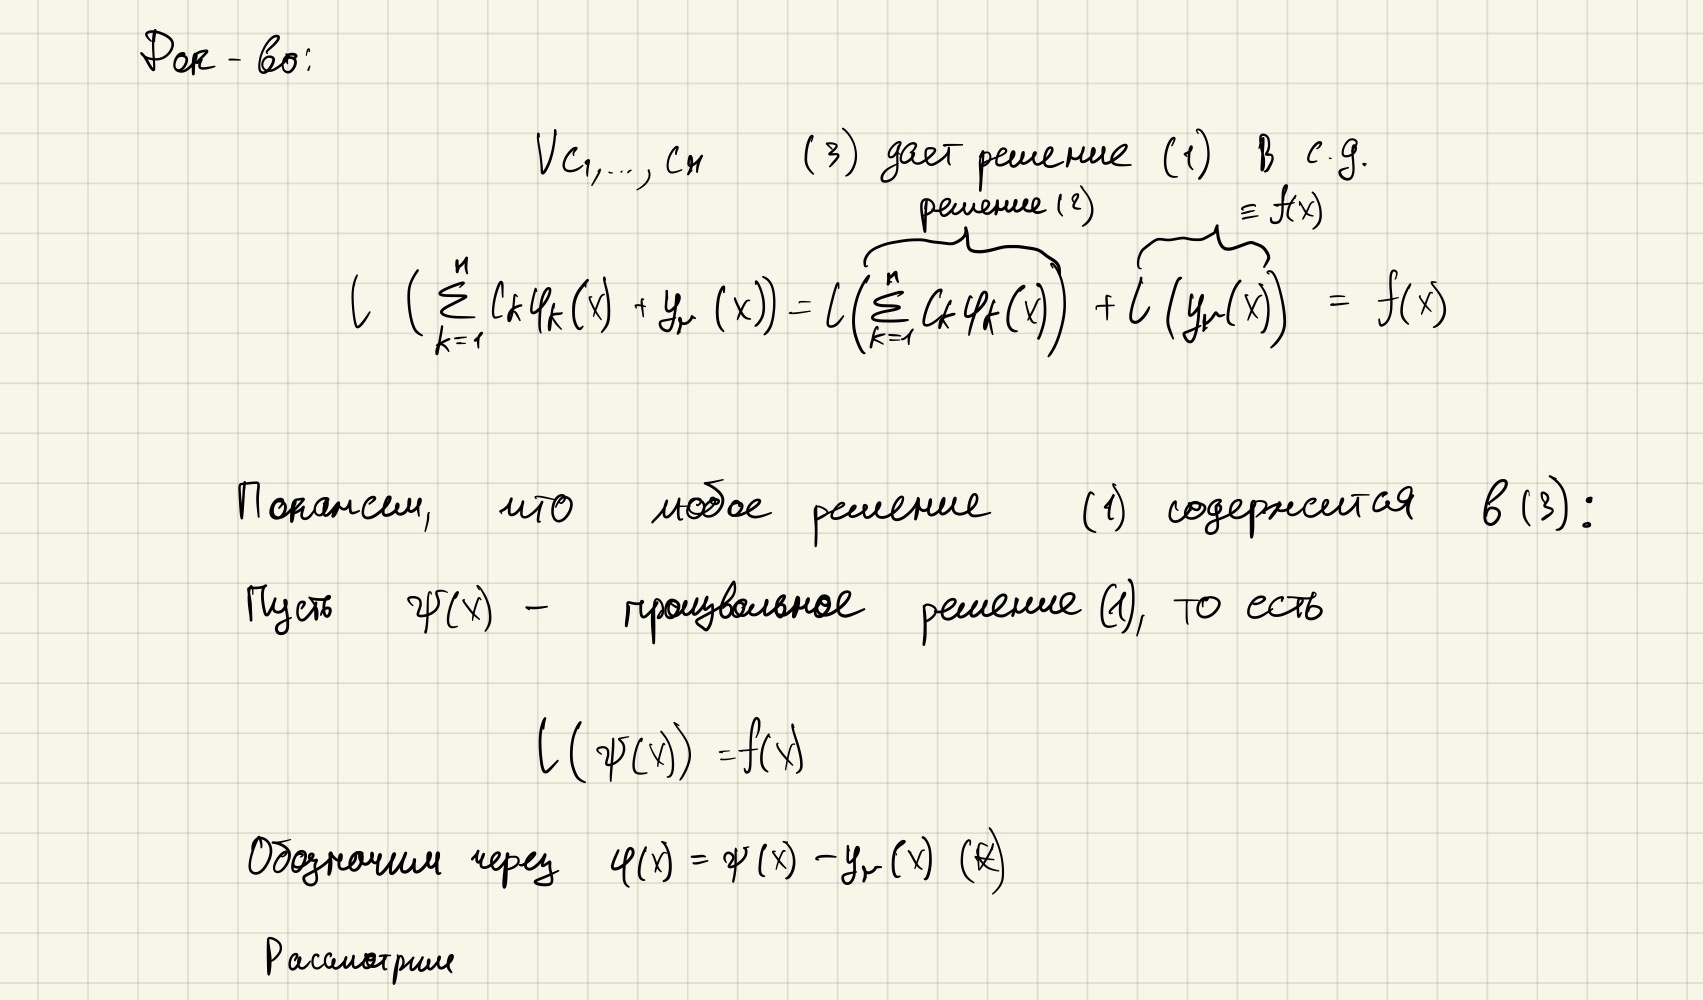 Док-во:
∀c₁,...,cₙ (3) дает решение (1) в с.д.
решение (2) ≡ f(x)
L(∑ₖ₌₁ⁿ Cₖφₖ(x) + yᵣ(x)) = L(∑ₖ₌₁ⁿ Cₖφₖ(x)) + L(yᵣ(x)) = f(x)
Покажем, что любое решение (1) содержится в (3):
Пусть ψ(x) - произвольное решение (1), то есть
L(ψ(x)) = f(x)
Обозначим через φ(x) = ψ(x) - yᵣ(x) (*)
Рассмотрим